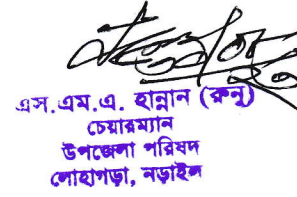 এস.এম.এ. হান্নান (রুনু)
চেয়ারম্যান
উপজেলা পরিষদ
লোহাগড়া, নড়াইল